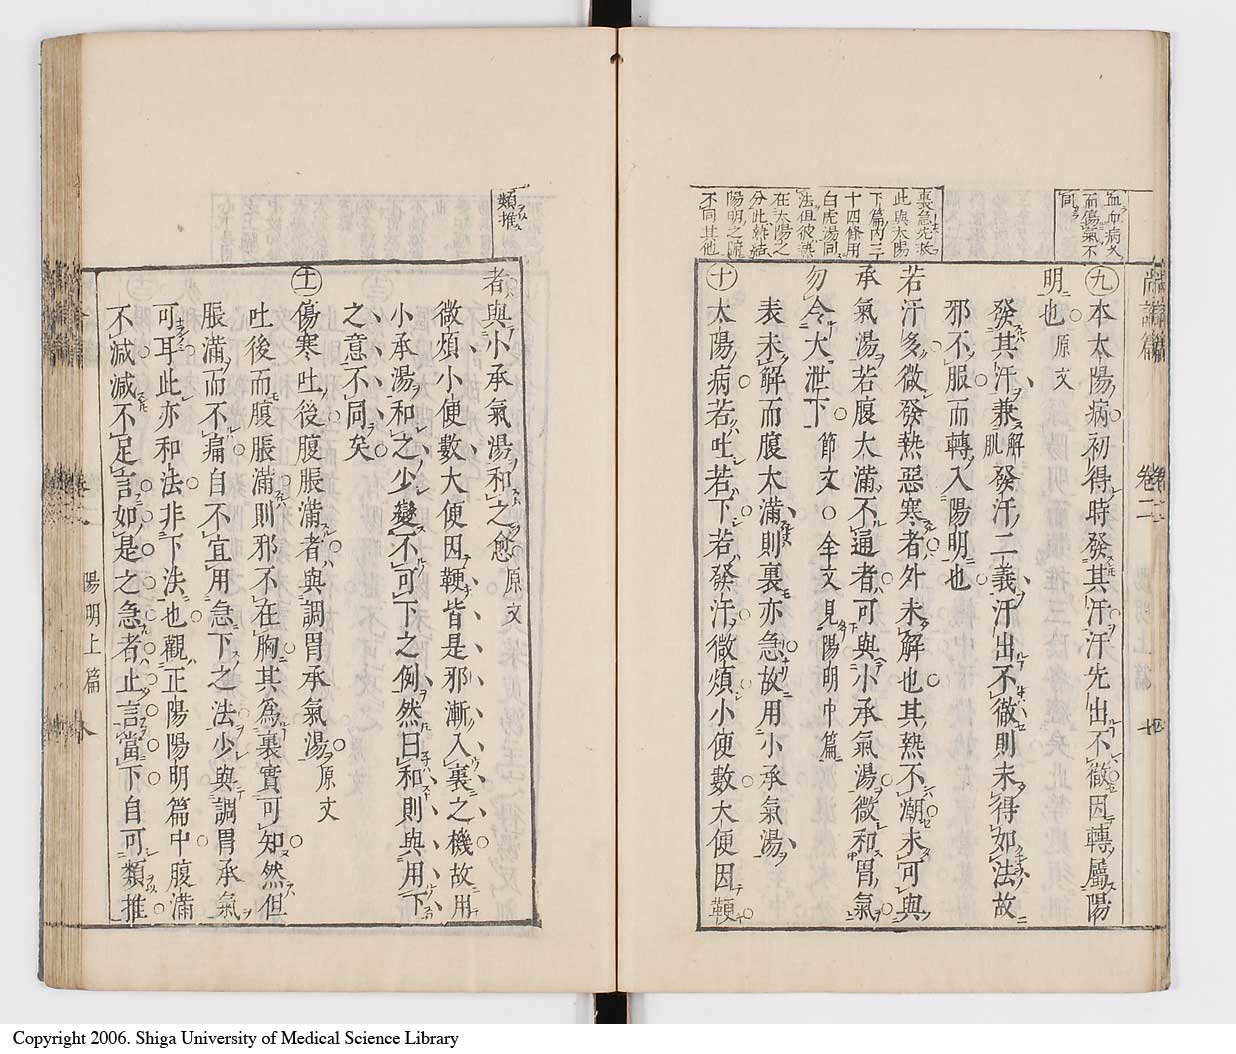 血血病文
而傷氣不
同
尚論篇
卷二
九本太陽病初得時發其汗汗先出不徹因轉屬陽
明也原文
發其汗兼解肌發汗二義汗出不徹則未得如法故
邪不服而轉入陽明也
若汗多微發熱惡寒者外未解也其熱不潮未可與
承氣湯若腹大滿不通者可與小承氣湯微和胃氣
勿令大泄下節文○全文見陽明中篇
表未解而腹大滿則裏亦急故用小承氣湯
十太陽病若吐若下若發汗微煩小便數大便因鞕
此與太陽
下篇內三
十四條用
白虎湯同
法但彼熱
在太陽之
分此辨結
陽明之
不同其他
類推
者與小承氣湯和之愈原文
微煩小便數大便因鞕皆是邪漸入裏之機故用
小承湯和之少變不可下之例然曰和則與用下
之意不同矣
十一傷寒吐後腹脹滿者與調胃承氣湯原文
吐後而腹脹滿則邪不在胸其為裏實可知然但
脹滿而不痛自不宜用急下之法少與調胃承氣
可耳此亦和法非下法也觀正陽陽明篇中腹滿
不減減不足言如是之急者止言當下自可類推
陽明上篇
Copyright 2006. Shiga University of Medical Science Library